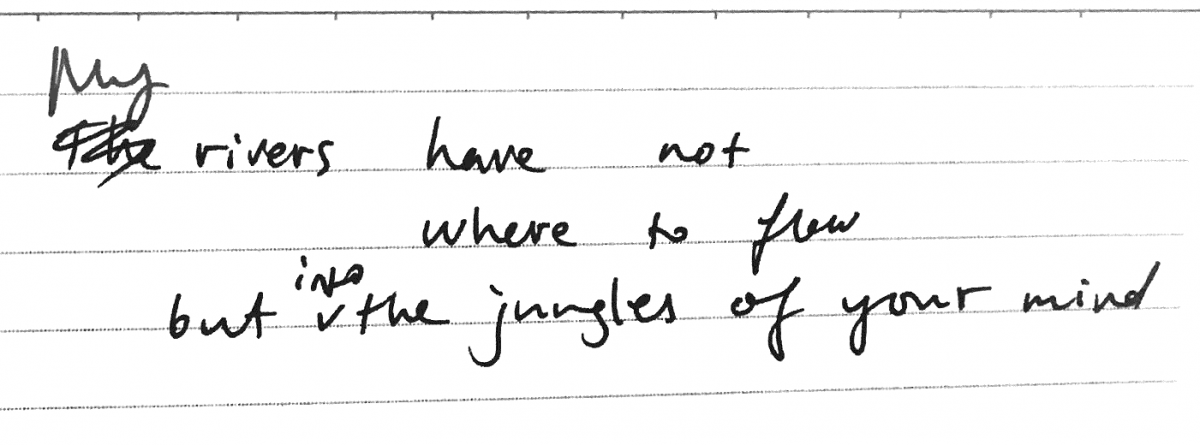 My
rivers have not
where to flow
but into the jungles of your mind